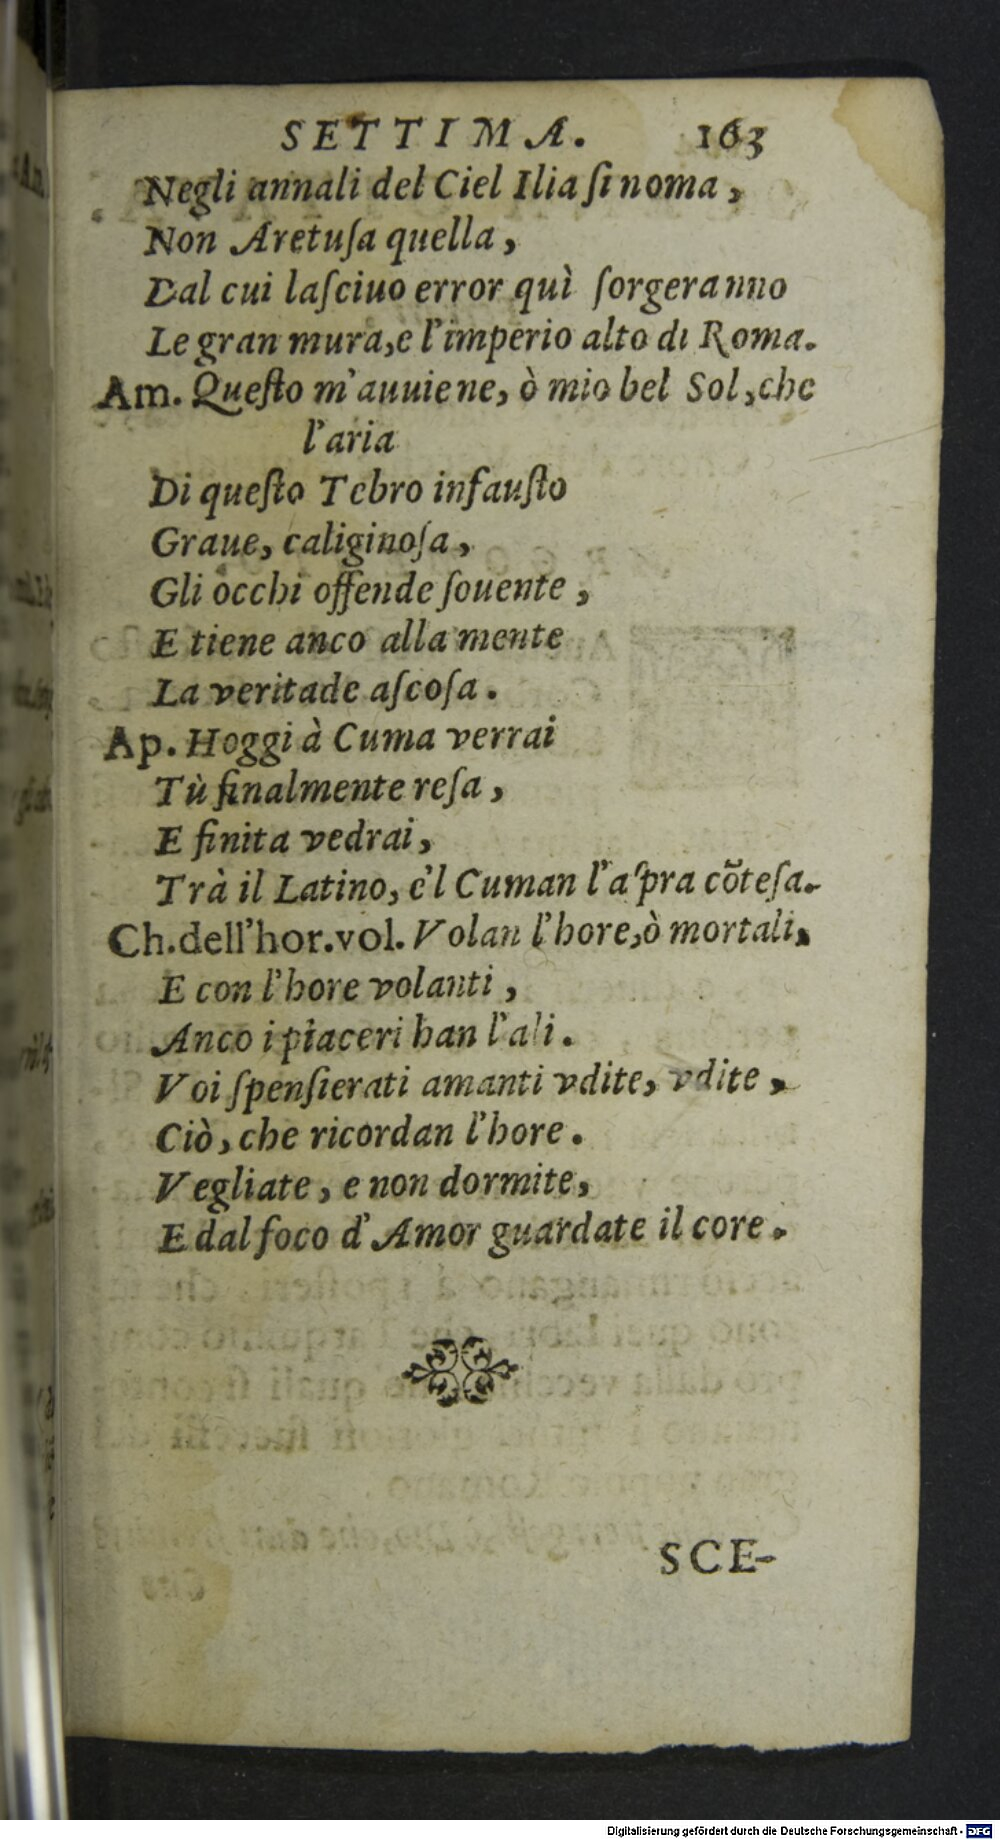 SETTIMA. 163
Negli annali del Ciel Ilia ſi noma,
Non Aretuſa quella,
Dal cui laſciuo error quì ſorgeranno
Le gran mura, e l'imperio alto di Roma.
Am. Queſto m'auuiene, ò mio bel Sol, che
l'aria
Di queſto Tebro infauſto
Graue, caliginoſa,
Gli occhi offende ſouente,
E tiene anco alla mente
La veritade aſcoſa.
Ap. Hoggi à Cuma verrai
Tù finalmente reſa,
E finita vedrai,
Trà il Latino, e'l Cuman l'aſpra cõteſa.
Ch. dell'hor. vol. Volan l'hore, ò mortali,
E con l'hore volanti,
Anco i piaceri han l'ali.
Voi ſpenſierati amanti vdite, vdite,
Ciò, che ricordan l'hore.
Vegliate, e non dormite,
E dal foco d'Amor guardate il core.
SCE-
Digitalisierung gefördert durch die Deutsche Forschungsgemeinschaft - DFG